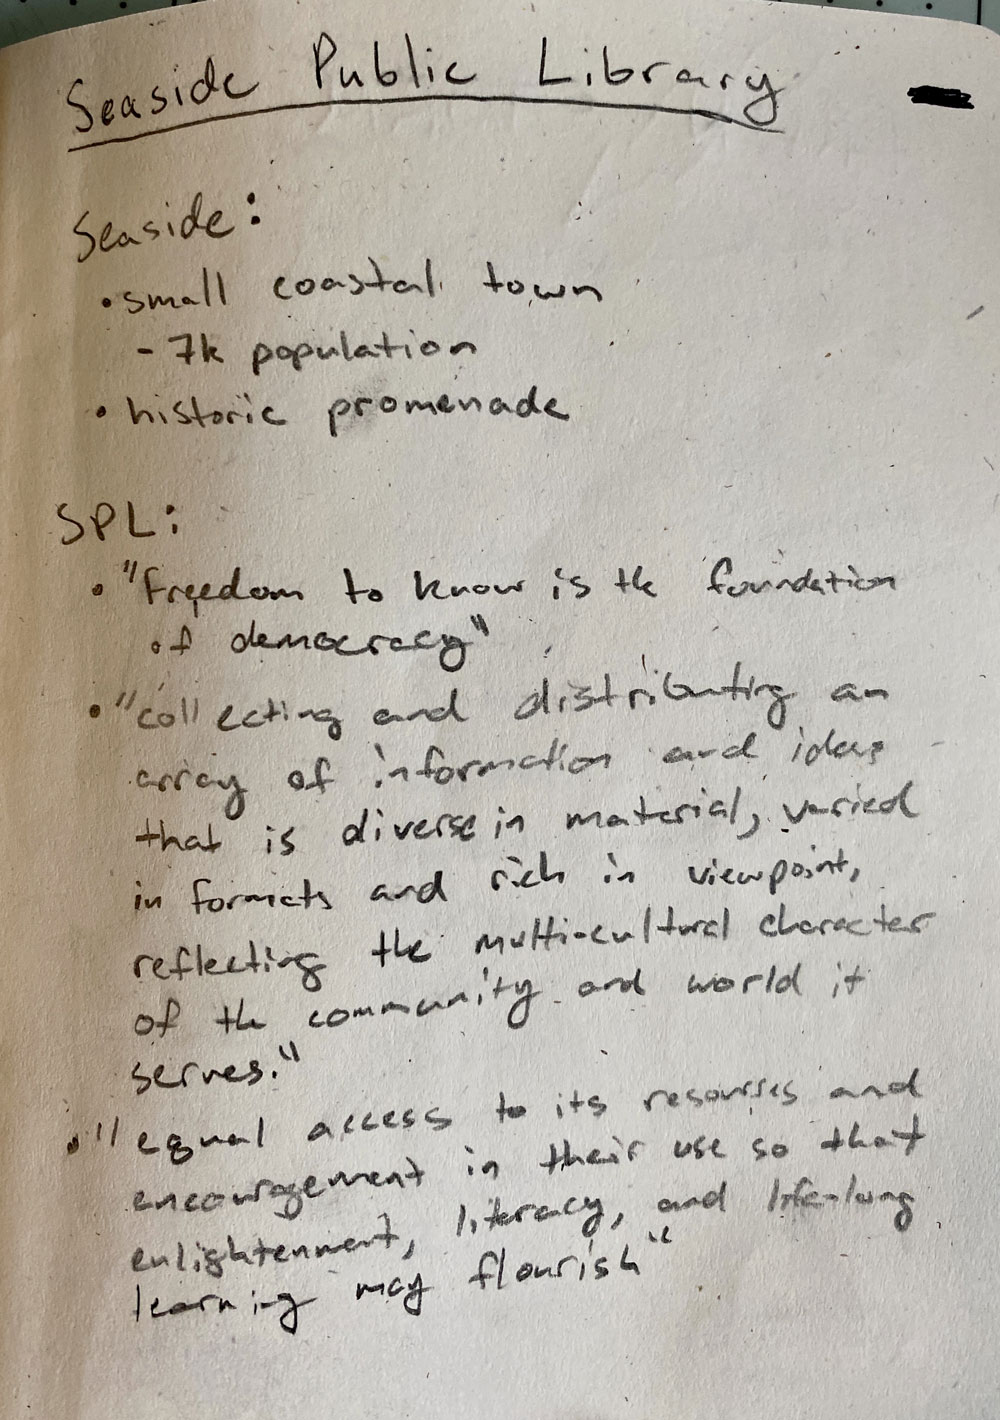 Seaside Public Library
Seaside:
• small coastal town
- 7k population
• historic promenade
SPL:
• "Freedom to know is the foundation
of democracy"
• "collecting and distributing an
array of information and ideas
that is diverse in material, varied
in formats and rich in viewpoint,
reflecting the multi-cultural character
of the community and world it
serves."
• "equal access to its resources and
encouragement in their use so that
enlightenment, literacy, and life-long
learning may flourish"